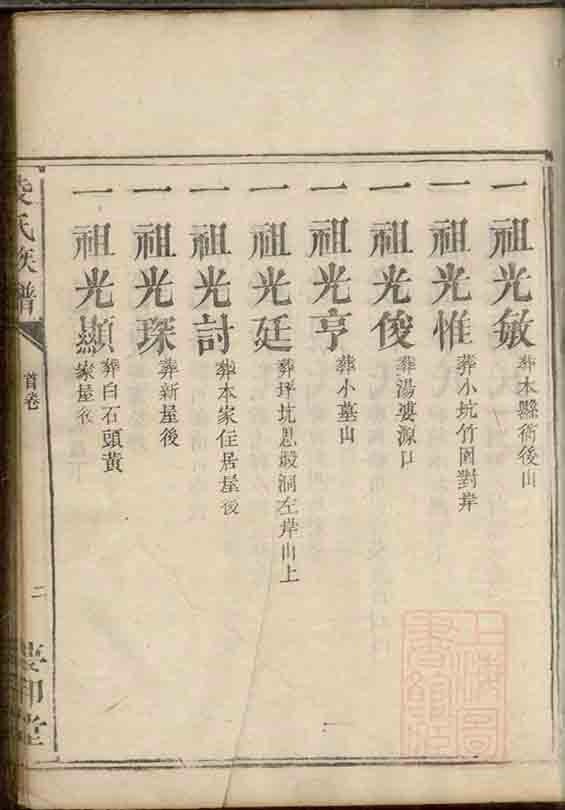 一祖光敏葬本縣衙後山
一祖光惟葬小坑竹園對岸
一祖光俊葬湯婆源口
一祖光亨葬小墓山
一祖光廷葬坪坑思嶺洞左岸山上
一祖光討葬本家住居屋後
一祖光琛葬新屋後
一祖光顯葬白石頭黃
家屋後
氏族譜
首卷
二
堂
上海圖
書館藏